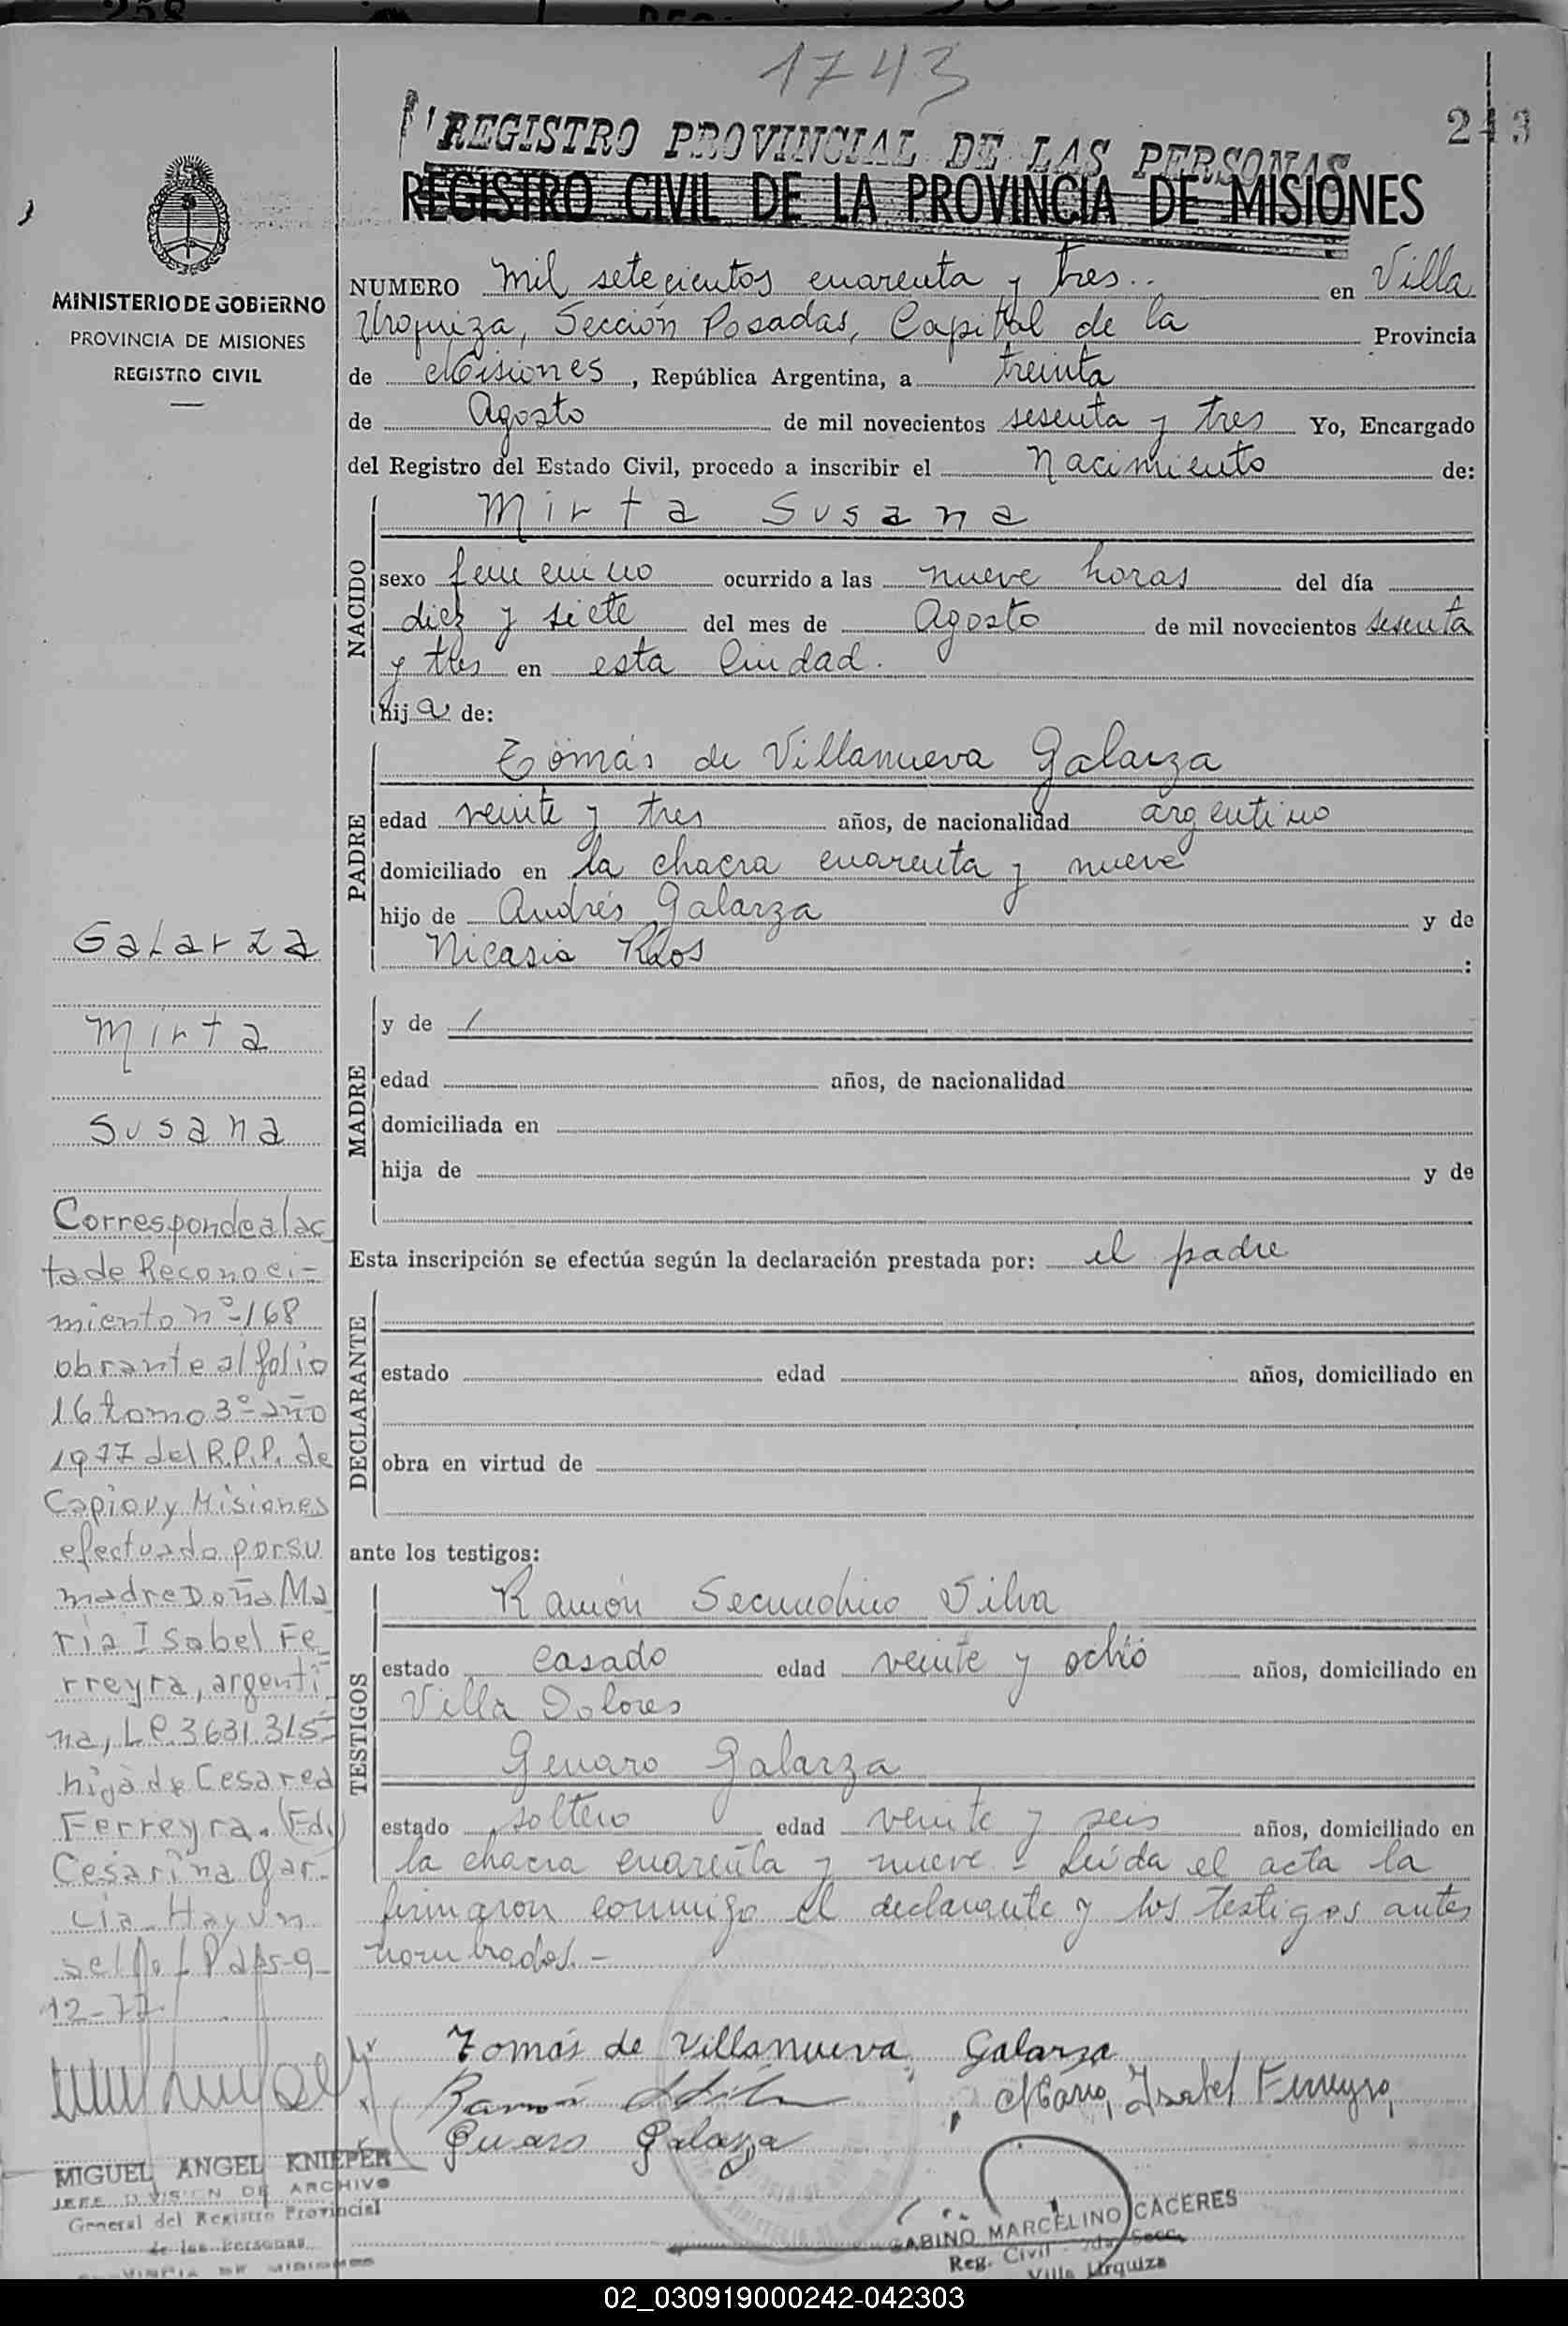 1743
243
REGISTRO PROVINCIAL DE LAS PERSONAS
REGISTRO CIVIL DE LA PROVINCIA DE MISIONES
MINISTERIO DE GOBIERNO
PROVINCIA DE MISIONES
REGISTRO CIVIL
NUMERO mil setecientos cuarenta y tres.. en Villa
Urquiza, Sección Posadas, Capital de la Provincia
de Misiones, República Argentina, a treinta
de Agosto de mil novecientos sesenta y tres Yo, Encargado
del Registro del Estado Civil, procedo a inscribir el Nacimiento de:
NACIDO
Mirta Susana
sexo femenino ocurrido a las nueve horas del día
diez y siete del mes de Agosto de mil novecientos sesenta
y tres en esta Ciudad.
hija de:
PADRE
Tomás de Villanueva Galarza
edad veinte y tres años, de nacionalidad argentino
domiciliado en la chacra cuarenta y nueve
hijo de Andrés Galarza y de
Nicasia Ríos :
MADRE
y de /
edad años, de nacionalidad
domiciliada en
hija de y de
Esta inscripción se efectúa según la declaración prestada por: el padre
DECLARANTE
estado edad años, domiciliado en
obra en virtud de
ante los testigos:
TESTIGOS
Ramón Secundino Silva
estado casado edad veinte y ocho años, domiciliado en
Villa Dolores
Genaro Galarza
estado soltero edad veinte y seis años, domiciliado en
la chacra cuarenta y nueve - Leída el acta la
firmaron conmigo el declarante y los testigos antes
nombrados.-
Tomás de Villanueva Galarza
Ramón Silva
María Isabel Ferreyra
Genaro Galarza
GABINO MARCELINO CACERES
Reg. Civil 2da. Secc.
Villa Urquiza
Galarza
Mirta
Susana
Corresponde al ac
ta de Reconoci-
miento nº-168
obrante al folio
16 tomo 3º-año
1977 del R.P.P. de
Capiovy Misiones
efectuado por su
madre Doña Ma
ría Isabel Fe
rreyra, argenti
na, LC.3631.315=
hija de Cesarea
Ferreyra. (Fd.)
Cesarina Gar-
cía-Hay un
sello
12-77
MIGUEL ANGEL KNIEPER
JEFE DIVISION DE ARCHIVO
General del Registro Provincial
de las Personas
PROVINCIA DE MISIONES
02_030919000242-042303